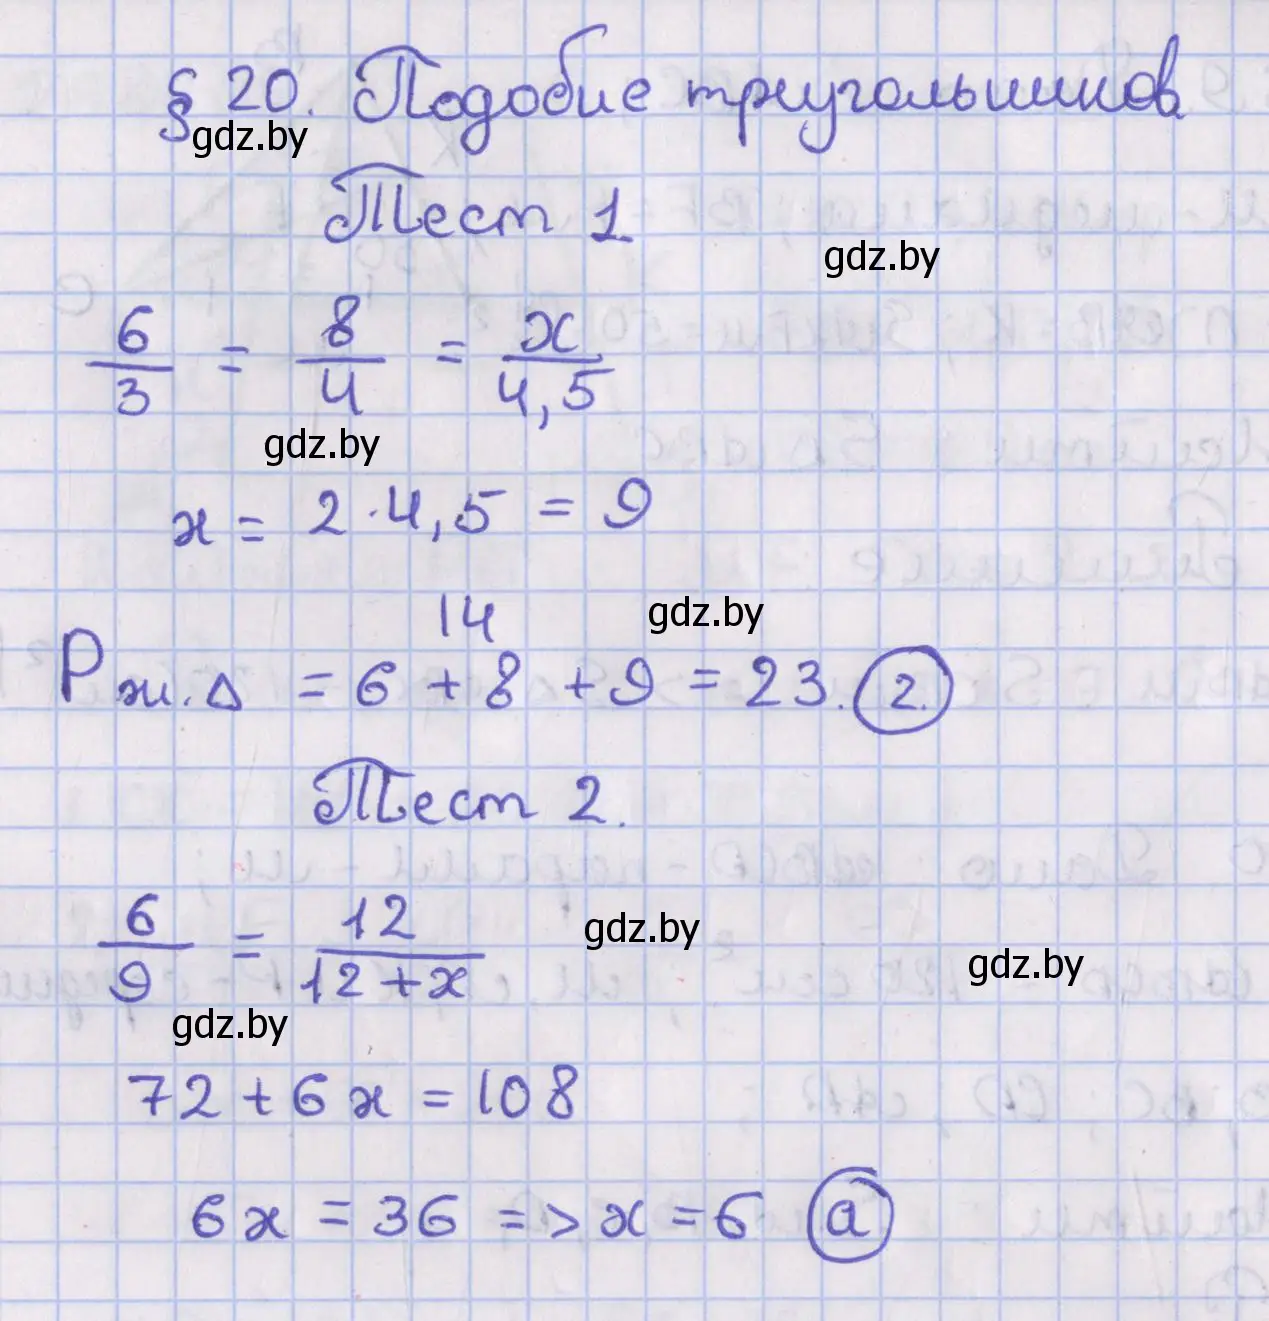 § 20. Подобие треугольников
gdz.by
Тест 1
gdz.by
6/3 = 8/4 = x/4,5
gdz.by
x = 2 · 4,5 = 9
14
gdz.by
Pж.Δ = 6 + 8 + 9 = 23. 2.
Тест 2.
6/9 = 12/(12+x)
gdz.by
gdz.by
gdz.by
72 + 6x = 108
6x = 36 => x = 6 a